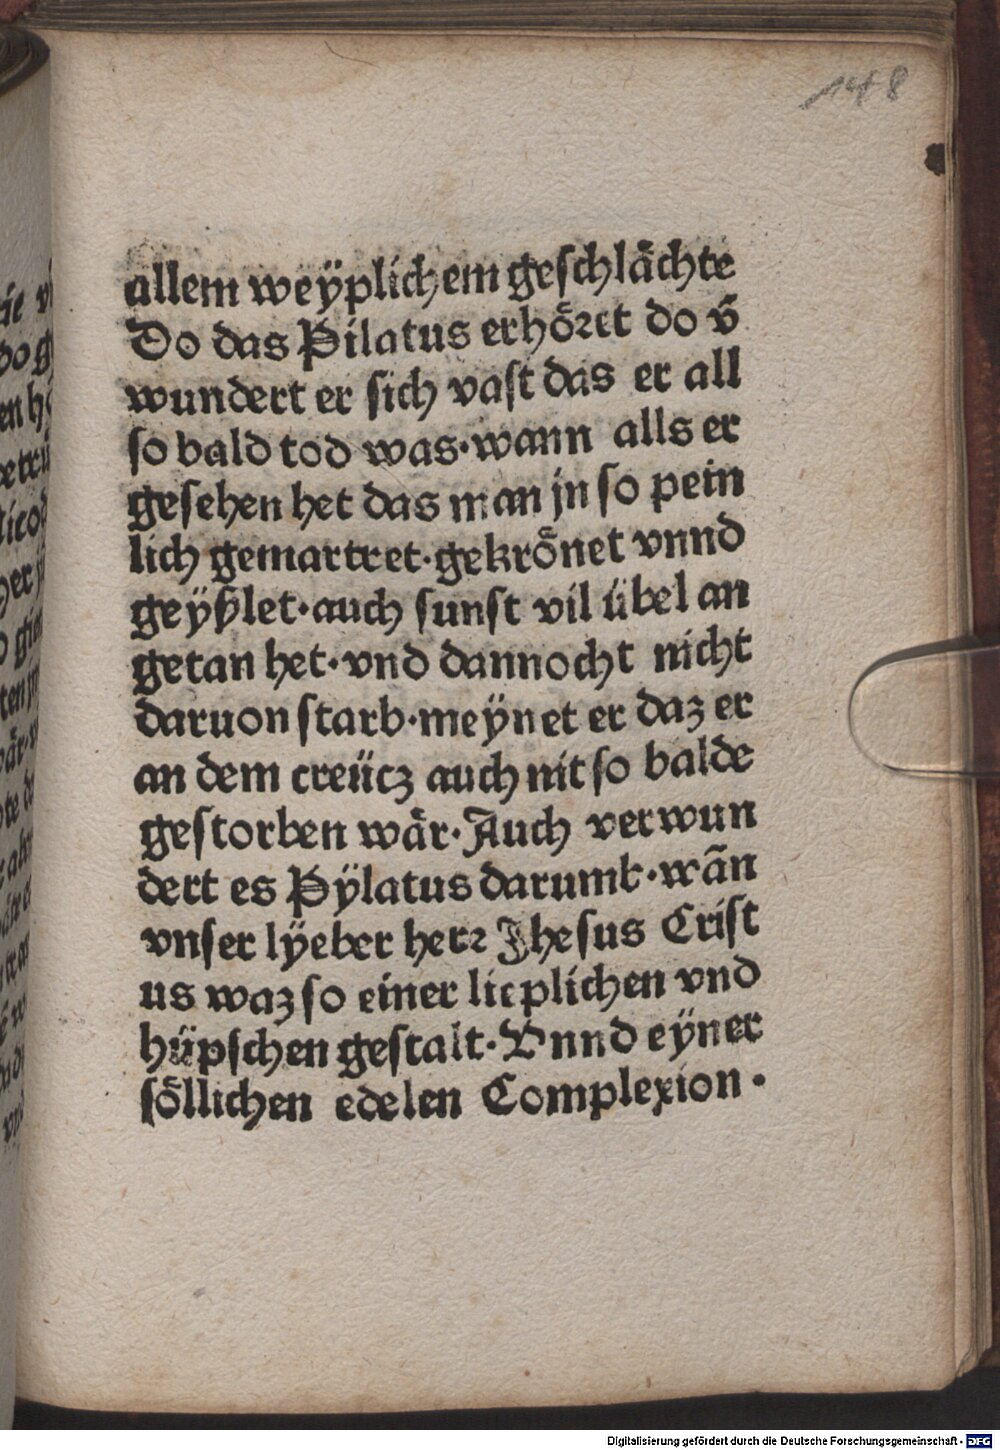 148
allem weÿplichem geschlächte
Do das Pilatus erhöret do v̄
wundert er sich vast das er all
so bald tod was·wann alls er
gesehen het das man jn so pein
lich gemartret·gekrönet vnnd
geÿßlet·auch sunst vil übel an
getan het·vnd dannocht nicht
daruon starb·meÿnet er daz er
an dem creücz auch nit so balde
gestorben wär·Auch verwun
dert es Pÿlatus darumb·wān
vnser lÿeber herr Jhesus Crist
us waz so einer lieplichen vnd
hüpschen gestalt·Vnnd eÿner
söllichen edelen Complexion·
Digitalisierung gefördert durch die Deutsche Forschungsgemeinschaft - DFG